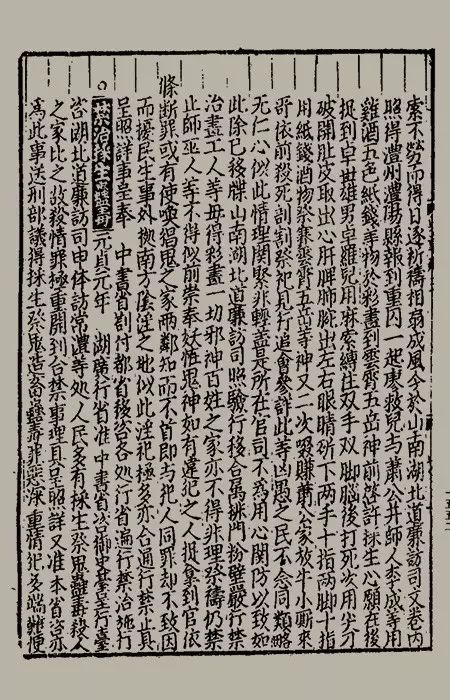 索不勞而得日逐祈禱相扇成風今於山南湖北道廉訪司文卷内
照得澧州澧陽縣報到重囚一起廖救兒与蕭公井師人李成等用
雞酒五色紙錢等物於彩畫到雲霄五岳神前啓許採生心願在後
捉到卓世雄男卓羅兒用麻索縛住双手双脚腦後打死次用尖刀
破開肚皮取出心肝脾肺出左右眼睛斫下兩手十指兩脚十指
用紙錢酒物祭賽雲霄五岳等神又二次啜賺蕭公家放牛小厮來
哥依前殺死剮割祭祀見行追會參詳此等凶愚之民不念同類略
无仁心似此情理関繫非輕蓋是所在官司不爲用心関防以致如
此除已移牒山南湖北道廉訪司照驗行後合属排門粉壁嚴行禁
治畫工人等毋得彩畫一切邪神百姓之家亦不得非理祭禱仍禁
止師巫人等不得似前崇奉妖恠鬼神如有違犯之人捉拿到官依
條断罪或有使喚猖鬼之家兩鄰知而不首即与犯人同罪却不致因
而擾民生事外據南方之地似此淫祀極多亦合通行禁止具
呈照詳事呈奉 中書省劄付都省後咨各処行省遍行禁治施行
禁治採生 元貞元年 湖廣行省准中書省咨御史臺呈行臺
咨湖北道廉訪司申体訪常澧等处人民多有採生祭鬼蠱毒殺人
之家比之故殺情罪極重開到合禁事理具呈照詳又准本省咨亦
為此事送刑部議得採生祭鬼造畜蠱毒罪惡深重情犯多端難便